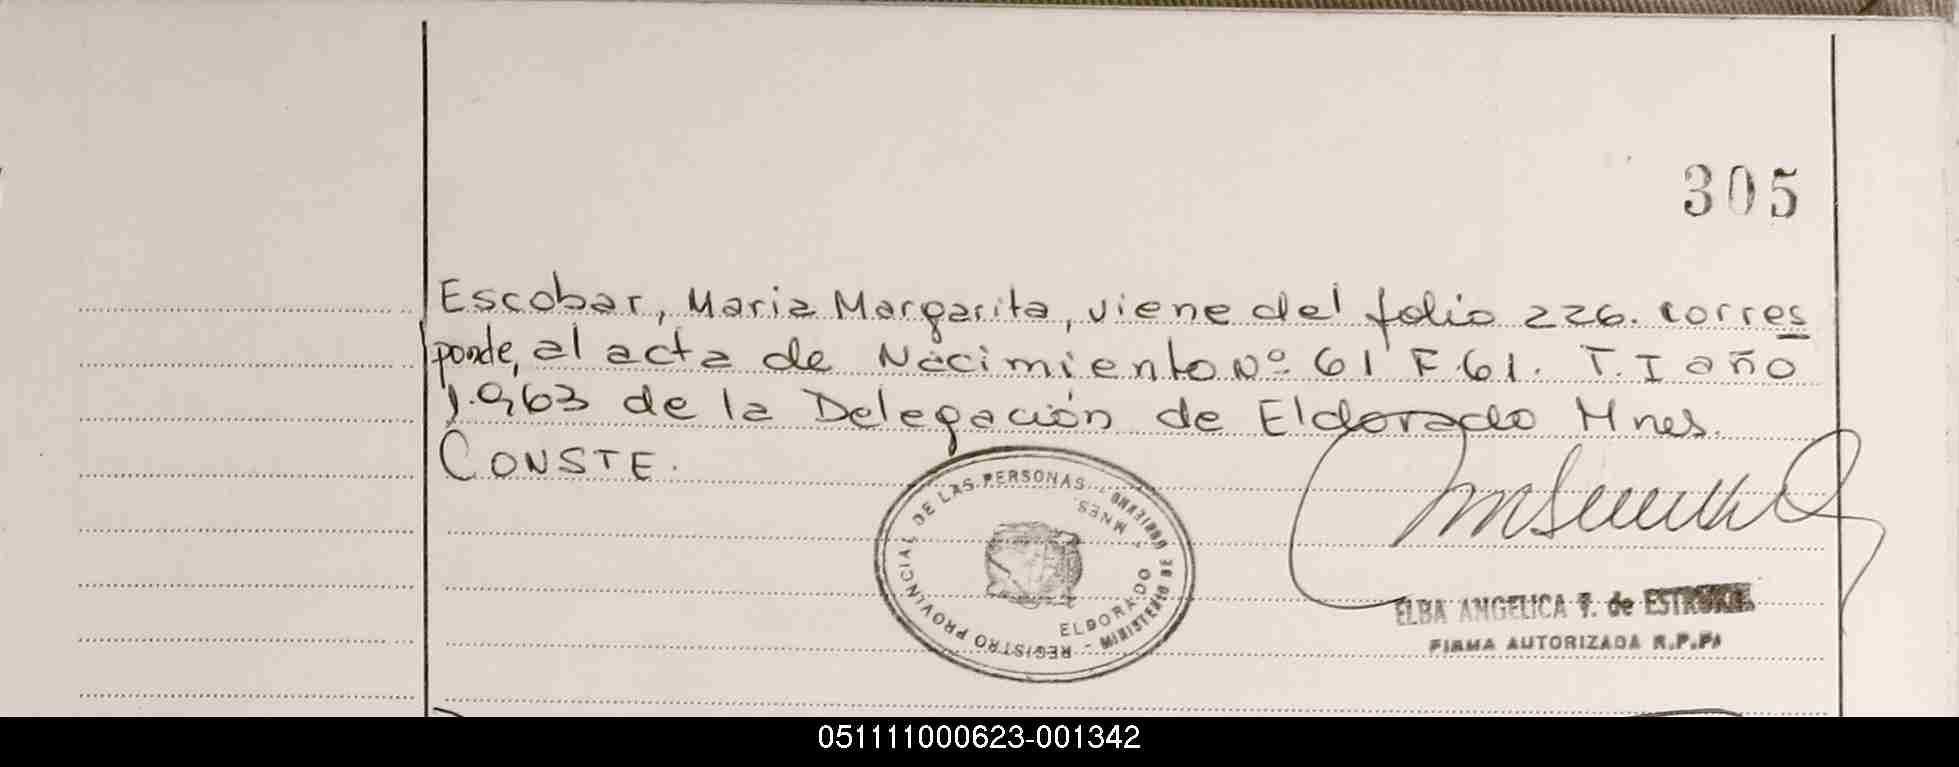 305
Escobar, Maria Margarita, viene del folio 226. corres
ponde, al acta de Nacimiento Nº 61 F.61. T.I año
1.963 de la Delegación de Eldorado Mnes.
CONSTE.
REGISTRO PROVINCIAL DE LAS PERSONAS
MINISTERIO DE GOBIERNO
ELDORADO - MNES.
ELBA ANGELICA F. de
FIRMA AUTORIZADA R.P.P.
051111000623-001342